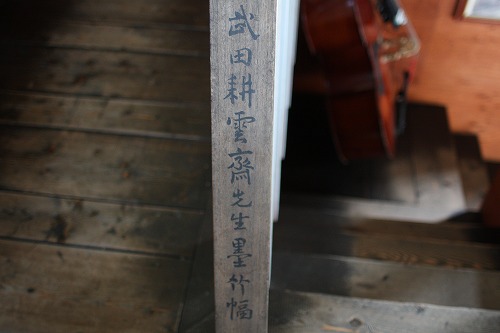 武田耕雲齋先生墨竹幅